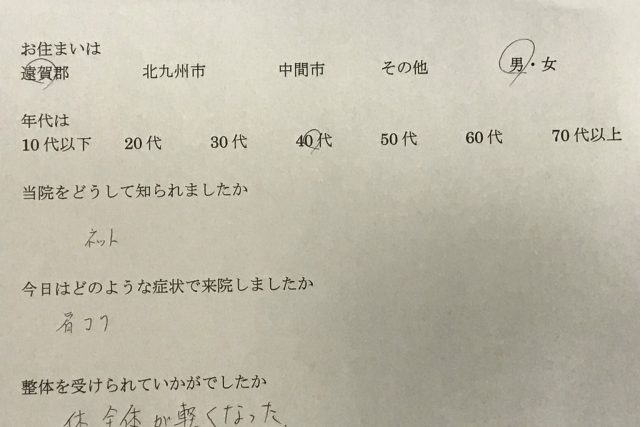 お住まいは
遠賀郡 北九州市 中間市 その他 男・女
年代は
10代以下 20代 30代 40代 50代 60代 70代以上
当院をどうして知られましたか
ネット
今日はどのような症状で来院しましたか
肩コリ
整体を受けられていかがでしたか
体全体が軽くなった。